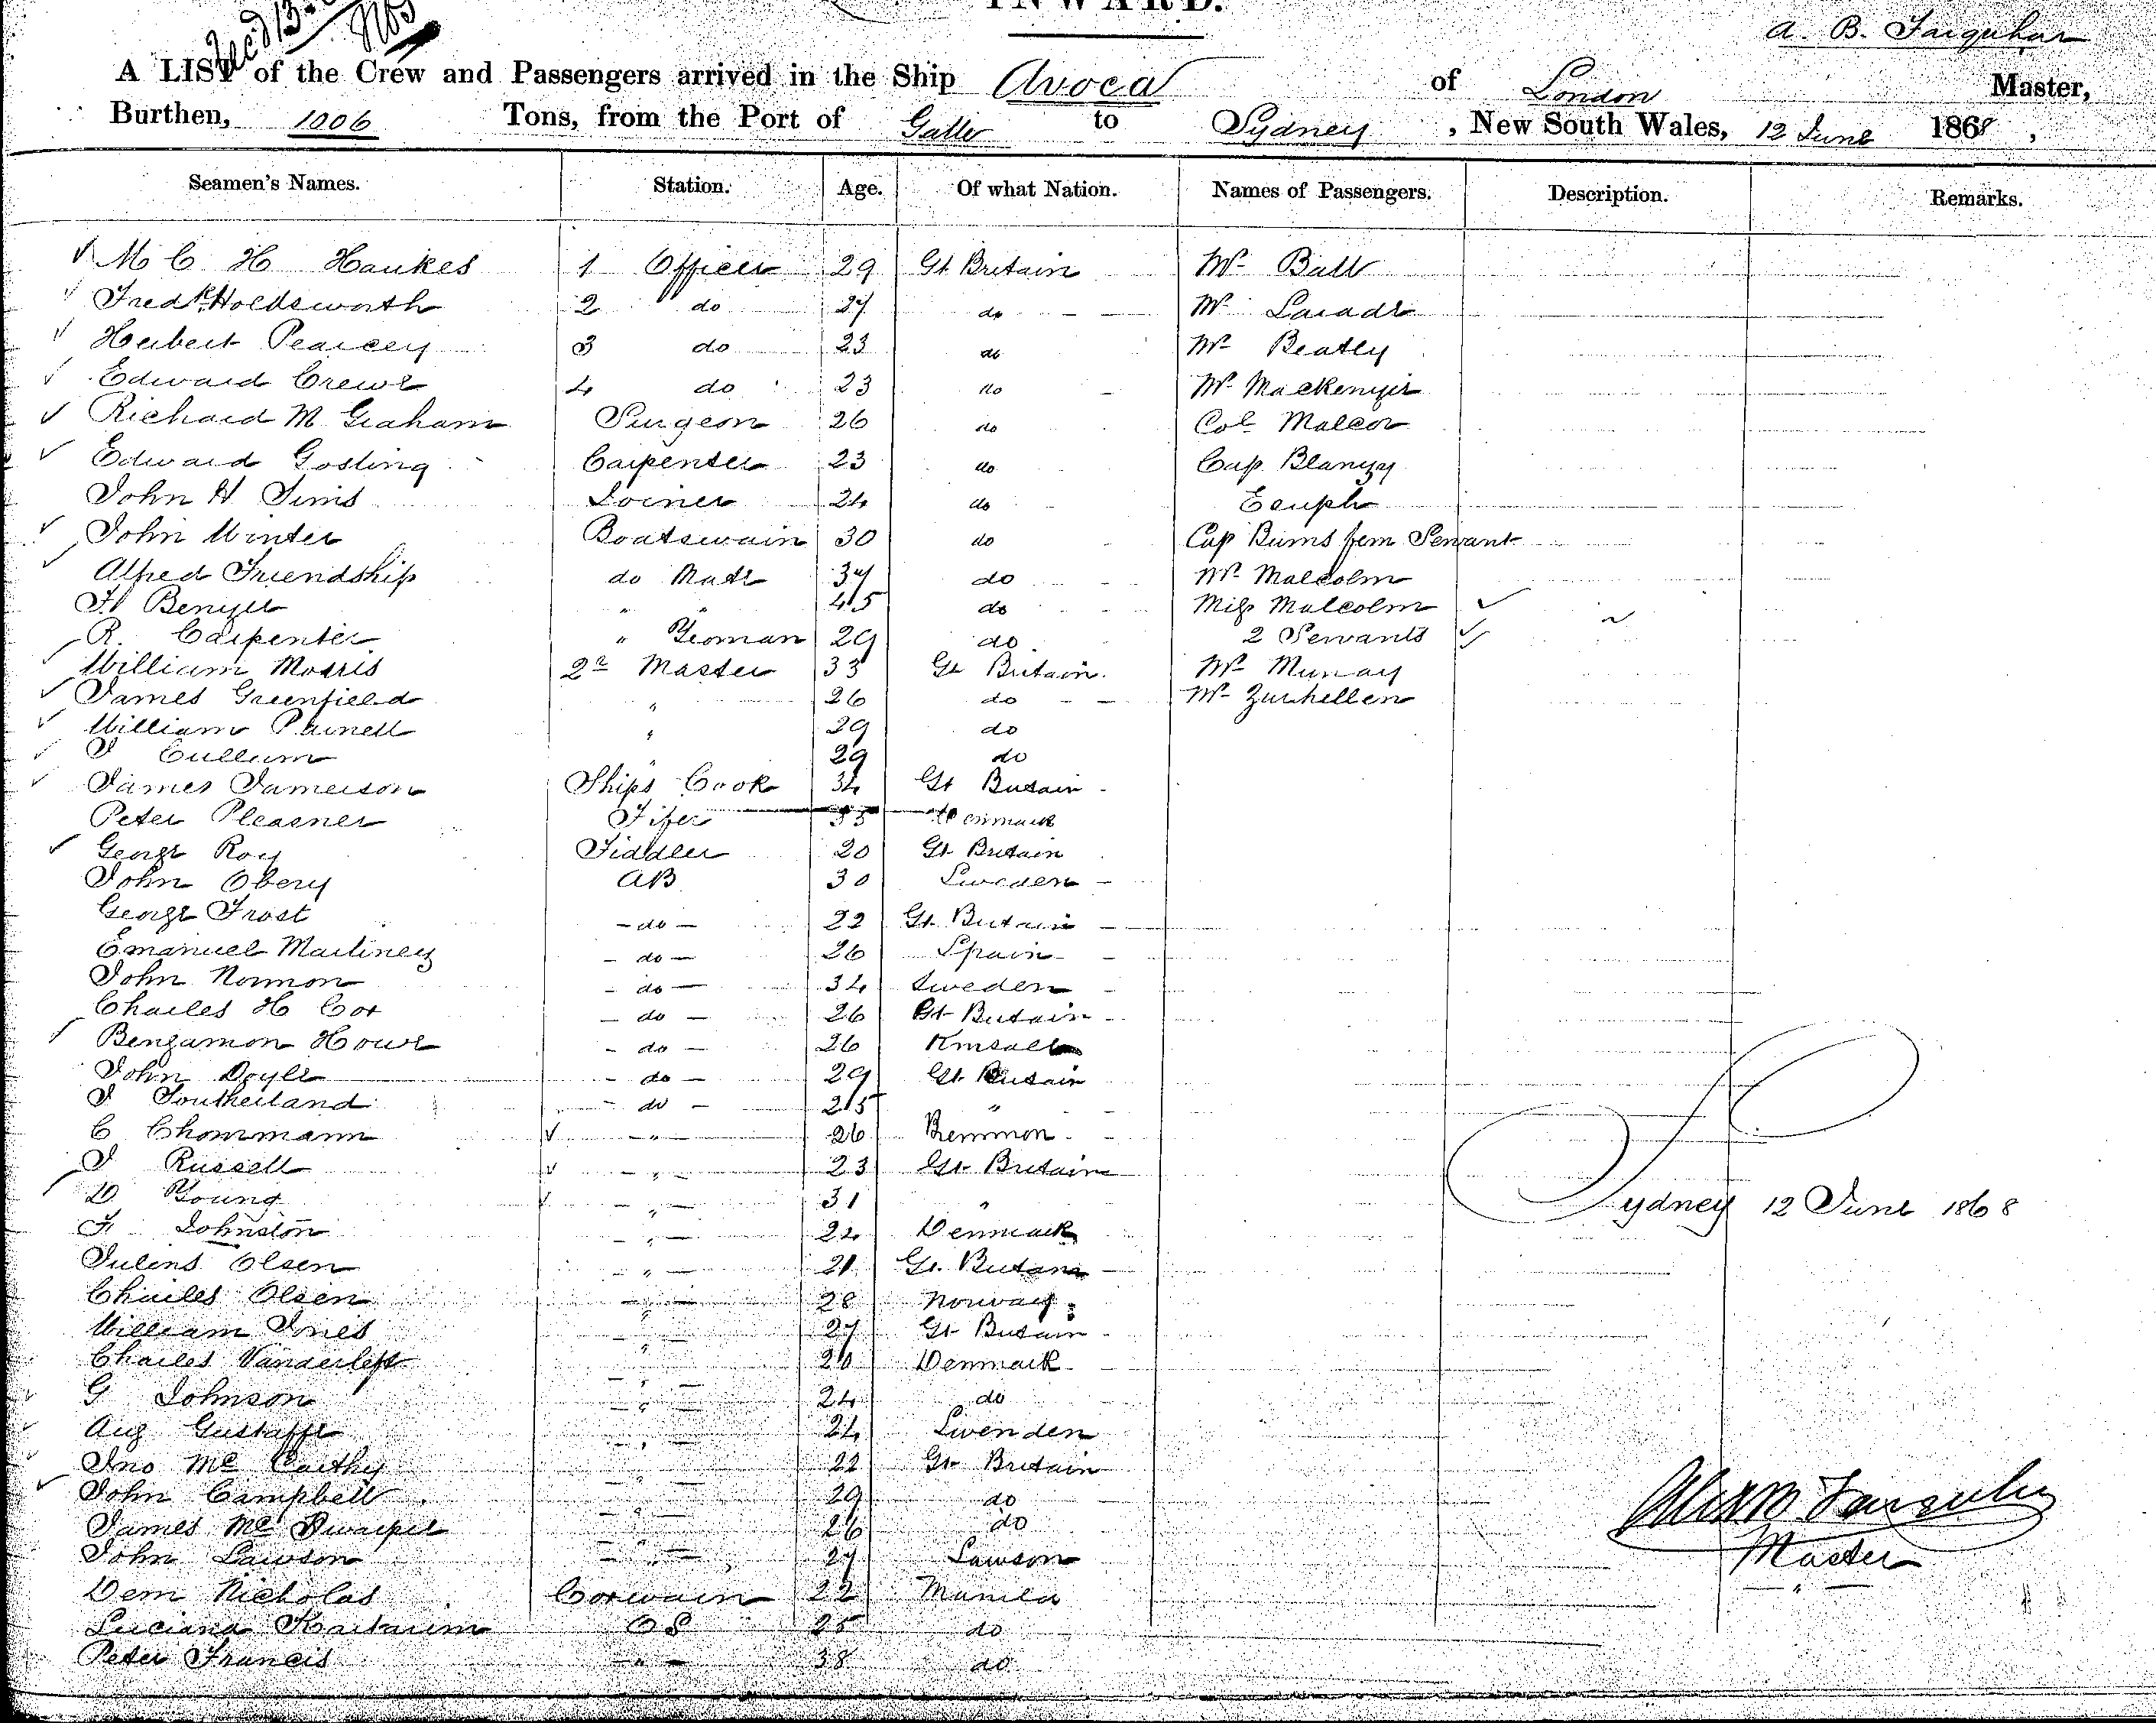 INWARD.
A. B. Farquhar
A LIST of the Crew and Passengers arrived in the Ship Avoca of London Master,
Burthen, 1006 Tons, from the Port of Galle to Sydney, New South Wales, 12 June 1868,
Seamen's Names. Station. Age. Of what Nation. Names of Passengers. Description. Remarks.
M C H Haukes 1 Officer 29 Gt Britain Mr Ball
Fredk Holdsworth 2 do 27 do Mr
Herbert Pearcey 3 do 23 do Mr Beatly
Edward Crewe 4 do 23 do Mr Mackenyie
Richard M Graham Surgeon 26 do Col Malcor
Edward Gosling Carpenter 23 do Cap Blanyy
John H Sims Joiner 24 do
John Winter Boatswain 30 do Cap Burns fem Servant
Alfred Friendship do Mate 37 do Mr Malcolm
H Benyer " " 45 do Miss Malcolm
R. Carpenter " Yeoman 29 do 2 Servants
William Morris 2r Master 33 Gt Britain Mr Murray
James Greenfield " 26 do Mr Zurhellen
William Parnell " 29 do
J Cullum " 29 do
James Jamerson Ships Cook 34 Gt Britain
Peter Pleasner Fifer 35 Denmark
George Roy Fiddler 20 Gt Britain
John Obery AB 30 Sweden
George Frost - do - 22 Gt Britain
Emanuel Martiney - do - 26 Spain
John Normon - do - 34 Sweden
Charles H Cox - do - 26 Gt Britain
Bengamon Howe - do - 26 Kinsale
John Doyle - do - 29 Gt Britain
J Southerland - do - 25 "
C Chommann - " - 26 Bremmon
J Russell - " - 23 Gt Britain
D Young - " - 31 "
F Johnston - " - 24 Denmark
Sydney 12 June 1868
Julens Olsen - " - 21 Gt Britain
Charles Olsen - " - 28 Norway
William Jones - " - 27 Gt Britain
Charles Vanderleft - " - 20 Denmark
G Johnson - " - 24 do
Aug Gustaffe - " - 24 Swenden
Jno Mc Carthy - " - 22 Gt Britain
John Campbell - " - 29 do
James Mc - " - 26 do
Farquhar
John Lawson - " - 27 Lawson
Master
Dem Nicholas 22 Manila
Luciana OS 25 do
Peter Francis - " - 38 do